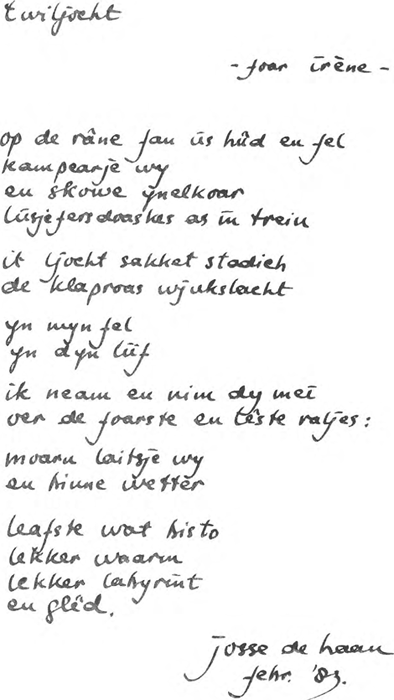 twiljocht
- foar irène -
op de râne fan ús hûd en fel
kampearje wy
en skowe ynelkoar
lúsjefersdoaskes as in trein
it ljocht sakket stadich
de klaproas wjukslacht
yn myn fel
yn dyn liif
ik neam en nim dy mei
oer de foarste en lêste raljes:
moarn laitsje wy
en binne wetter
leafste wat bisto
lekker waarm
lekker labyrint
en glêd.
josse de haan
febr. '83.